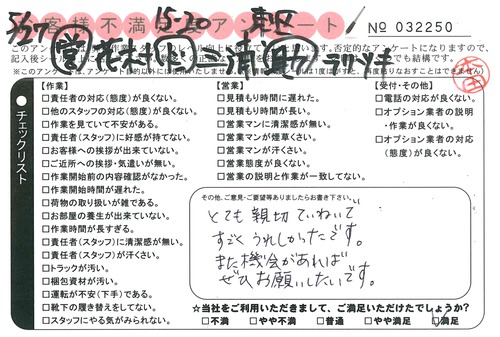 5/27 15-20 東区
お客様不満足度アンケート
№ 032250
チェックリスト
【作業】
□責任者の対応(態度)が良くない。
□他のスタッフの対応(態度)が良くない。
□作業を見ていて不安がある。
□責任者(スタッフ)に好感が持てない。
□お客様への挨拶が出来ていない。
□ご近所への挨拶・気遣いが無い。
□作業開始前の内容確認がなかった。
□作業開始時間が遅れた。
□荷物の取り扱いが雑である。
□お部屋の養生が出来ていない。
□作業時間が長すぎる。
□責任者(スタッフ)に清潔感が無い。
□責任者(スタッフ)が汗くさい。
□トラックが汚い。
□梱包資材が汚い。
□運転が不安(下手)である。
□靴下の履き替えをしてない。
□スタッフにやる気がみられない。
【営業】
□見積もり時間に遅れた。
□見積もり時間が長い。
□営業マンに清潔感が無い。
□営業マンが煙草くさい。
□営業マンが汗くさい。
□営業態度が良くない。
□営業の説明と作業が一致してない。
【受付・その他】
□電話の対応が良くない。
□オプション業者の説明
・作業が良くない。
□オプション業者の対応
(態度)が良くない。
その他、ご意見・ご要望等ありましたらお書き下さい。
とても親切ていねいで
すごくうれしかったです。
また機会があれば
ぜひお願いしたいです。
☆当社をご利用いただきまして、ご満足いただけたでしょうか?
□不満 □やや不満 □普通 □やや満足 □満足